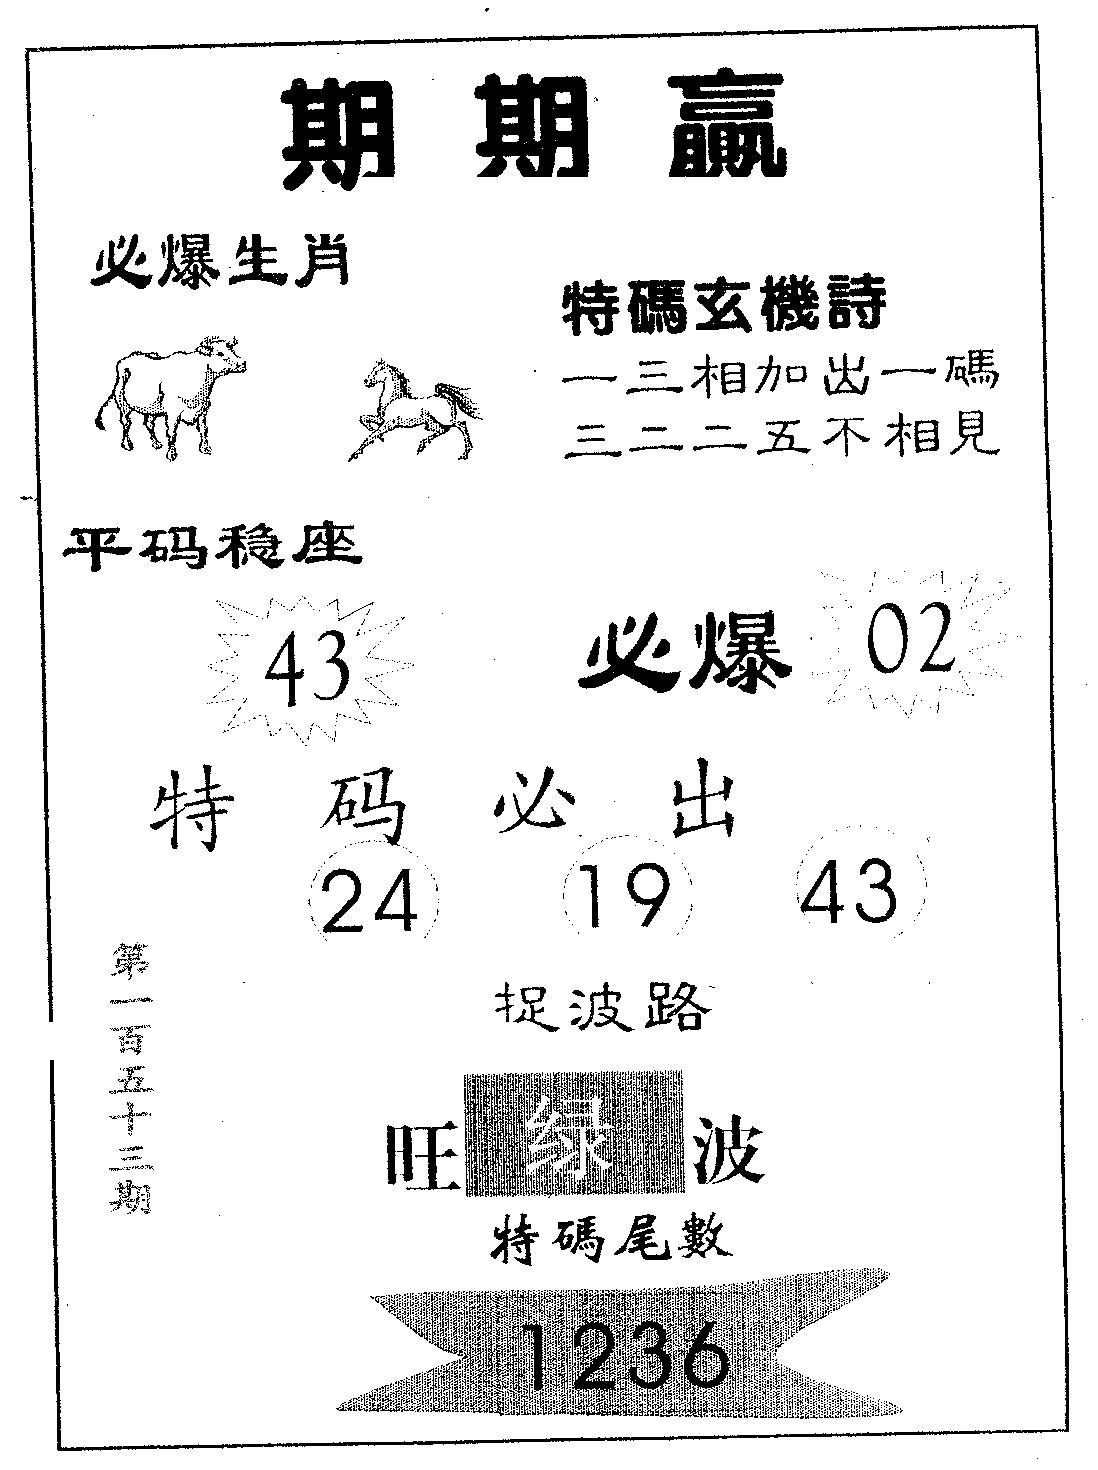 期期贏
必爆生肖
特碼玄機詩
一三相加出一碼
三二二五不相見
平码稳座
43
必爆 02
特码必出
24 19 43
第一百五十三期
捉波路
旺绿波
特碼尾數
1236